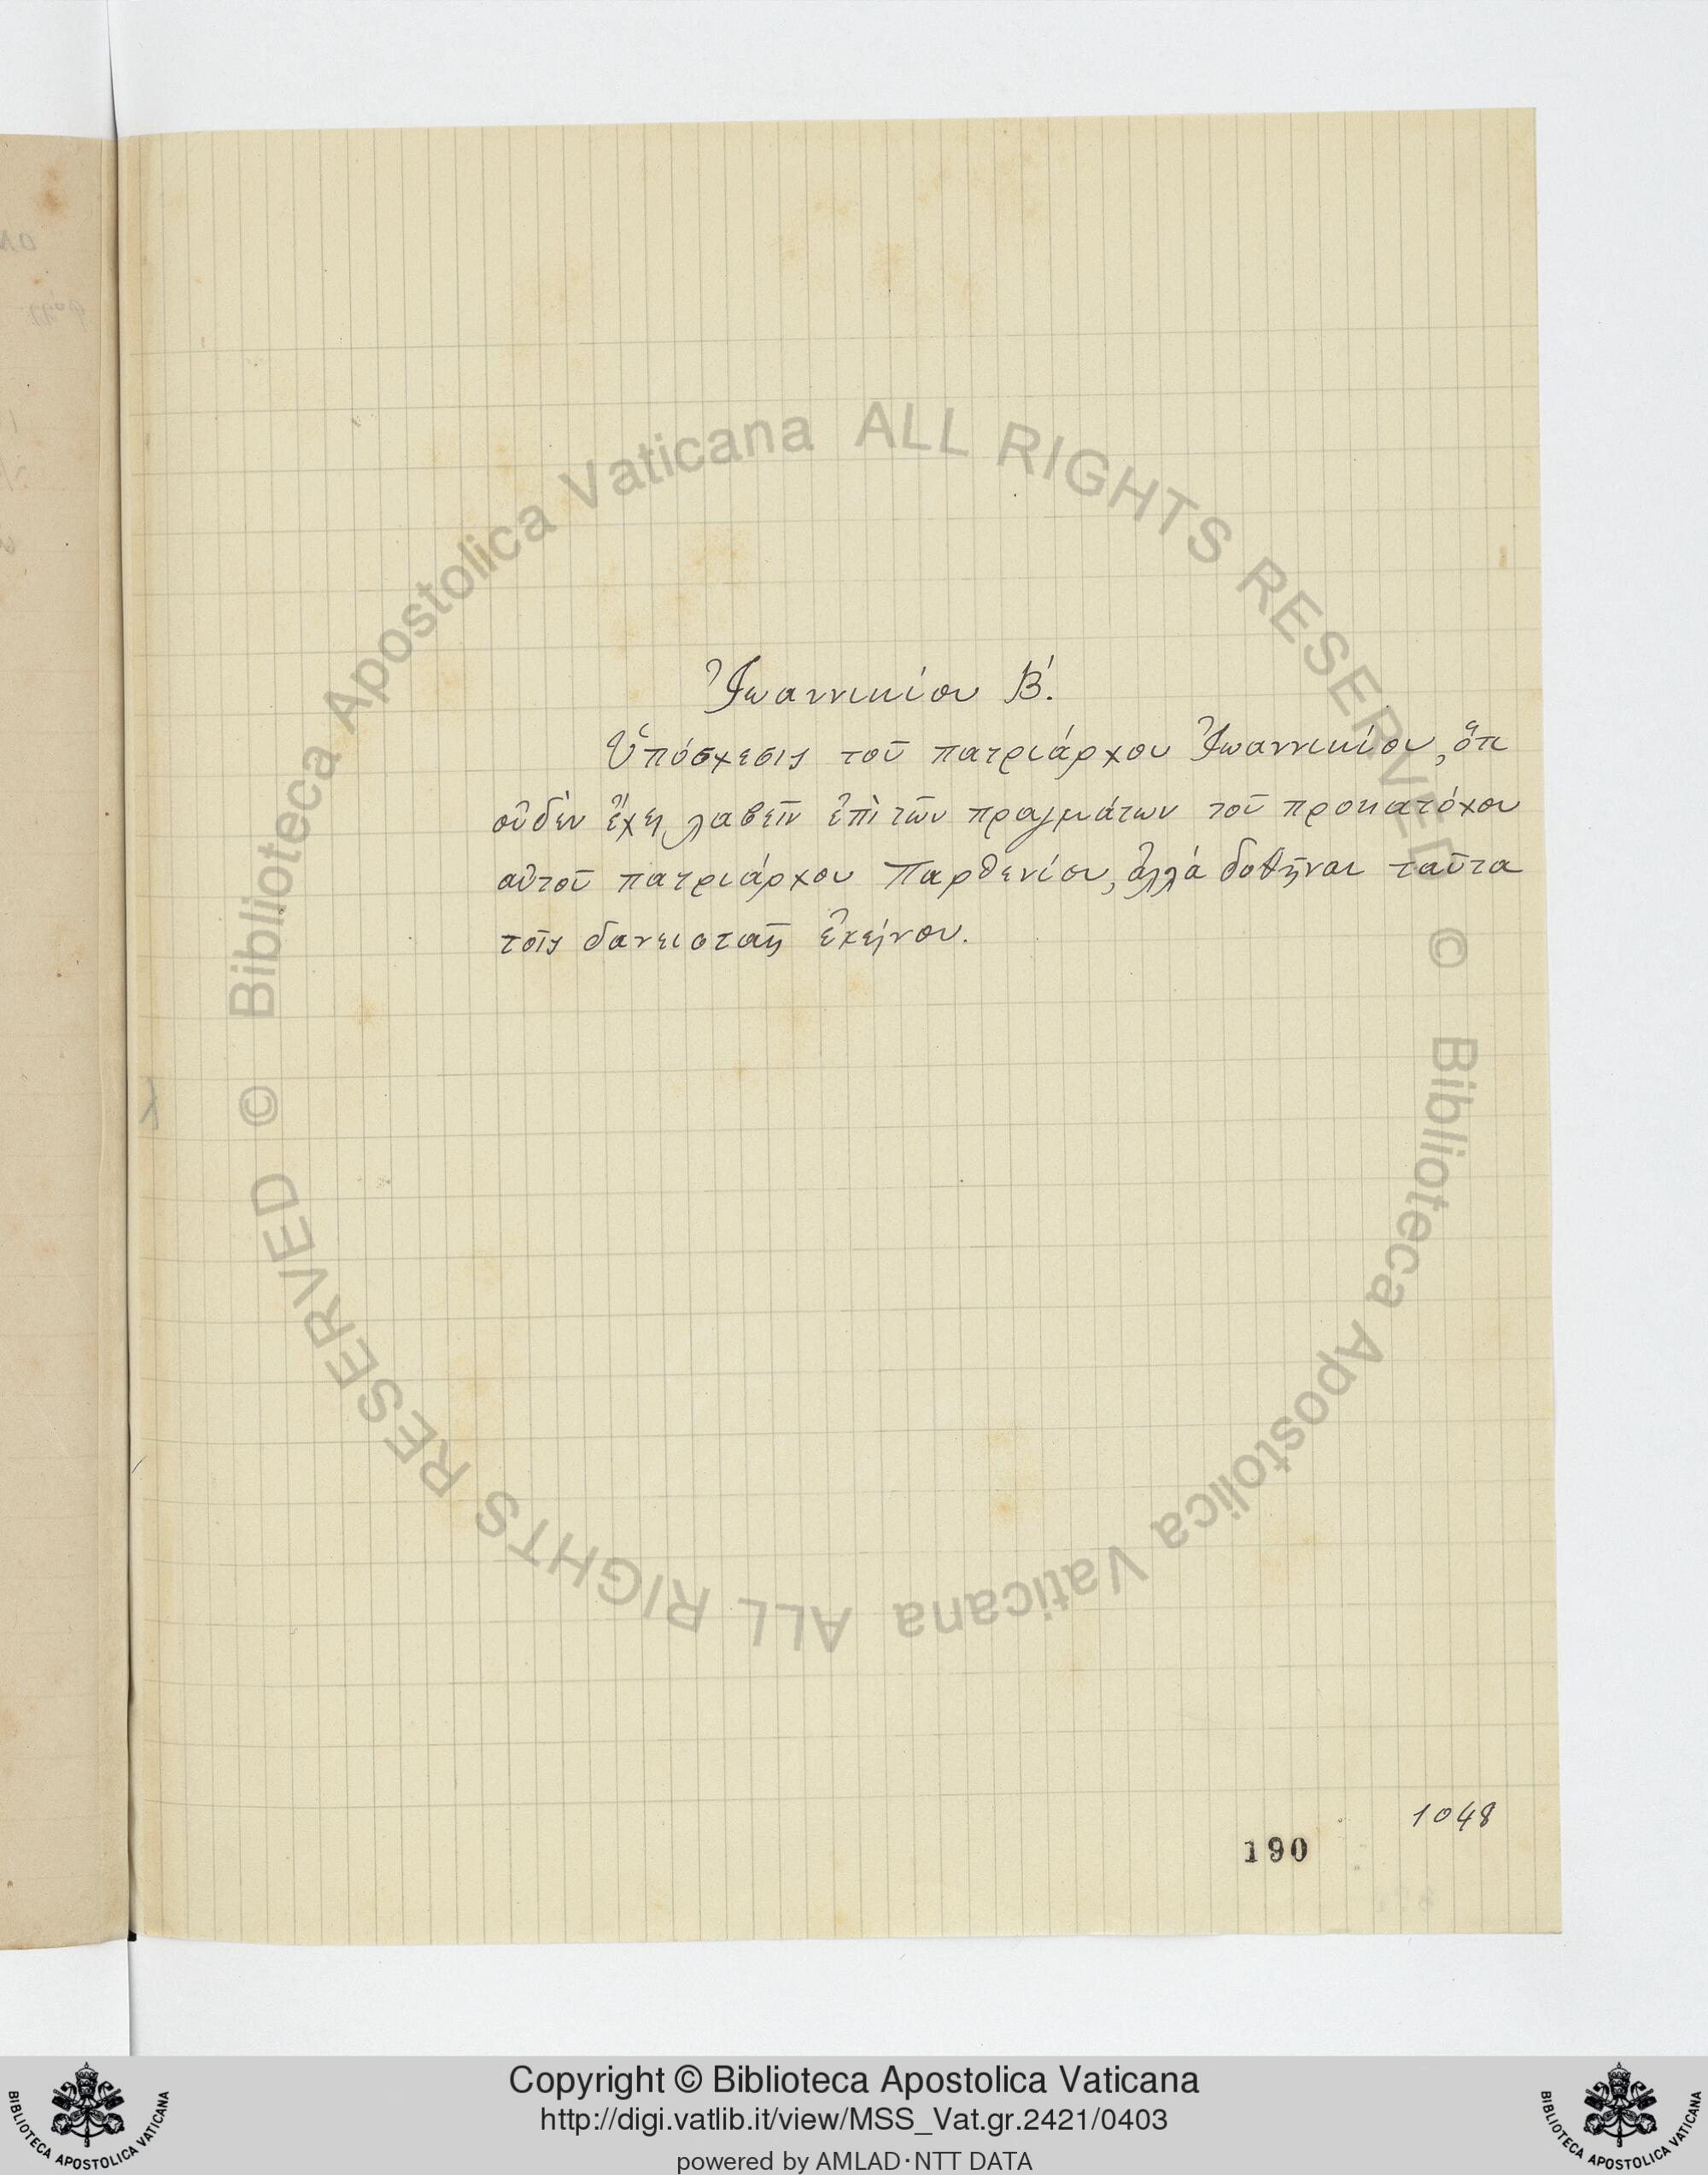 Ἰωαννικίου Β΄.
Ὑπόσχεσις τοῦ πατριάρχου Ἰωαννικίου, ὅτι
οὐδὲν ἔχει λαβεῖν ἐπὶ τῶν πραγμάτων τοῦ προκατόχου
αὐτοῦ πατριάρχου Παρθενίου, ἀλλά δοθῆναι ταῦτα
τοῖς δανεισταῖς ἐκείνου.
1048
190
© Biblioteca Apostolica Vaticana ALL RIGHTS RESERVED
© Biblioteca Apostolica Vaticana ALL RIGHTS RESERVED
Copyright © Biblioteca Apostolica Vaticana
http://digi.vatlib.it/view/MSS_Vat.gr.2421/0403
powered by AMLAD·NTT DATA
BIBLIOTECA APOSTOLICA VATICANA
BIBLIOTECA APOSTOLICA VATICANA